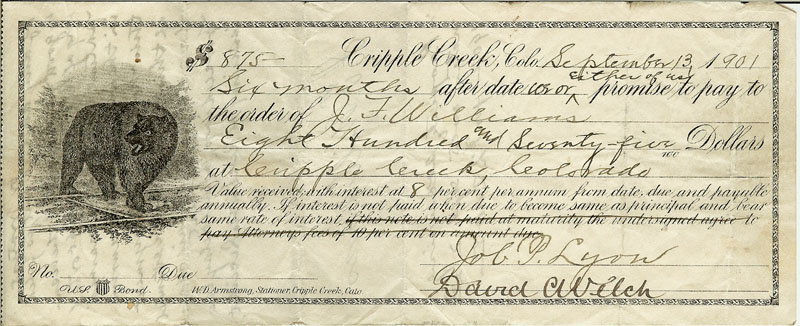 $ 875— Cripple Creek, Colo. September 13, 1901
Six months after date we or either of us promise to pay to
the order of J. F. Williams
Eight Hundred and Seventy-five /100 Dollars
at Cripple Creek, Colorado
Value received, with interest at 8 per cent per annum, from date, due and payable
annually. If interest is not paid when due to become same as principal and bear
same rate of interest, if this note is not paid at maturity the undersigned agree to
pay Attorneys fees of 10 per cent on amount due
Job. P. Lyon
No. Due
David C. Welch
U.S. Bond. W.D. Armstrong, Stationer, Cripple Creek, Colo.